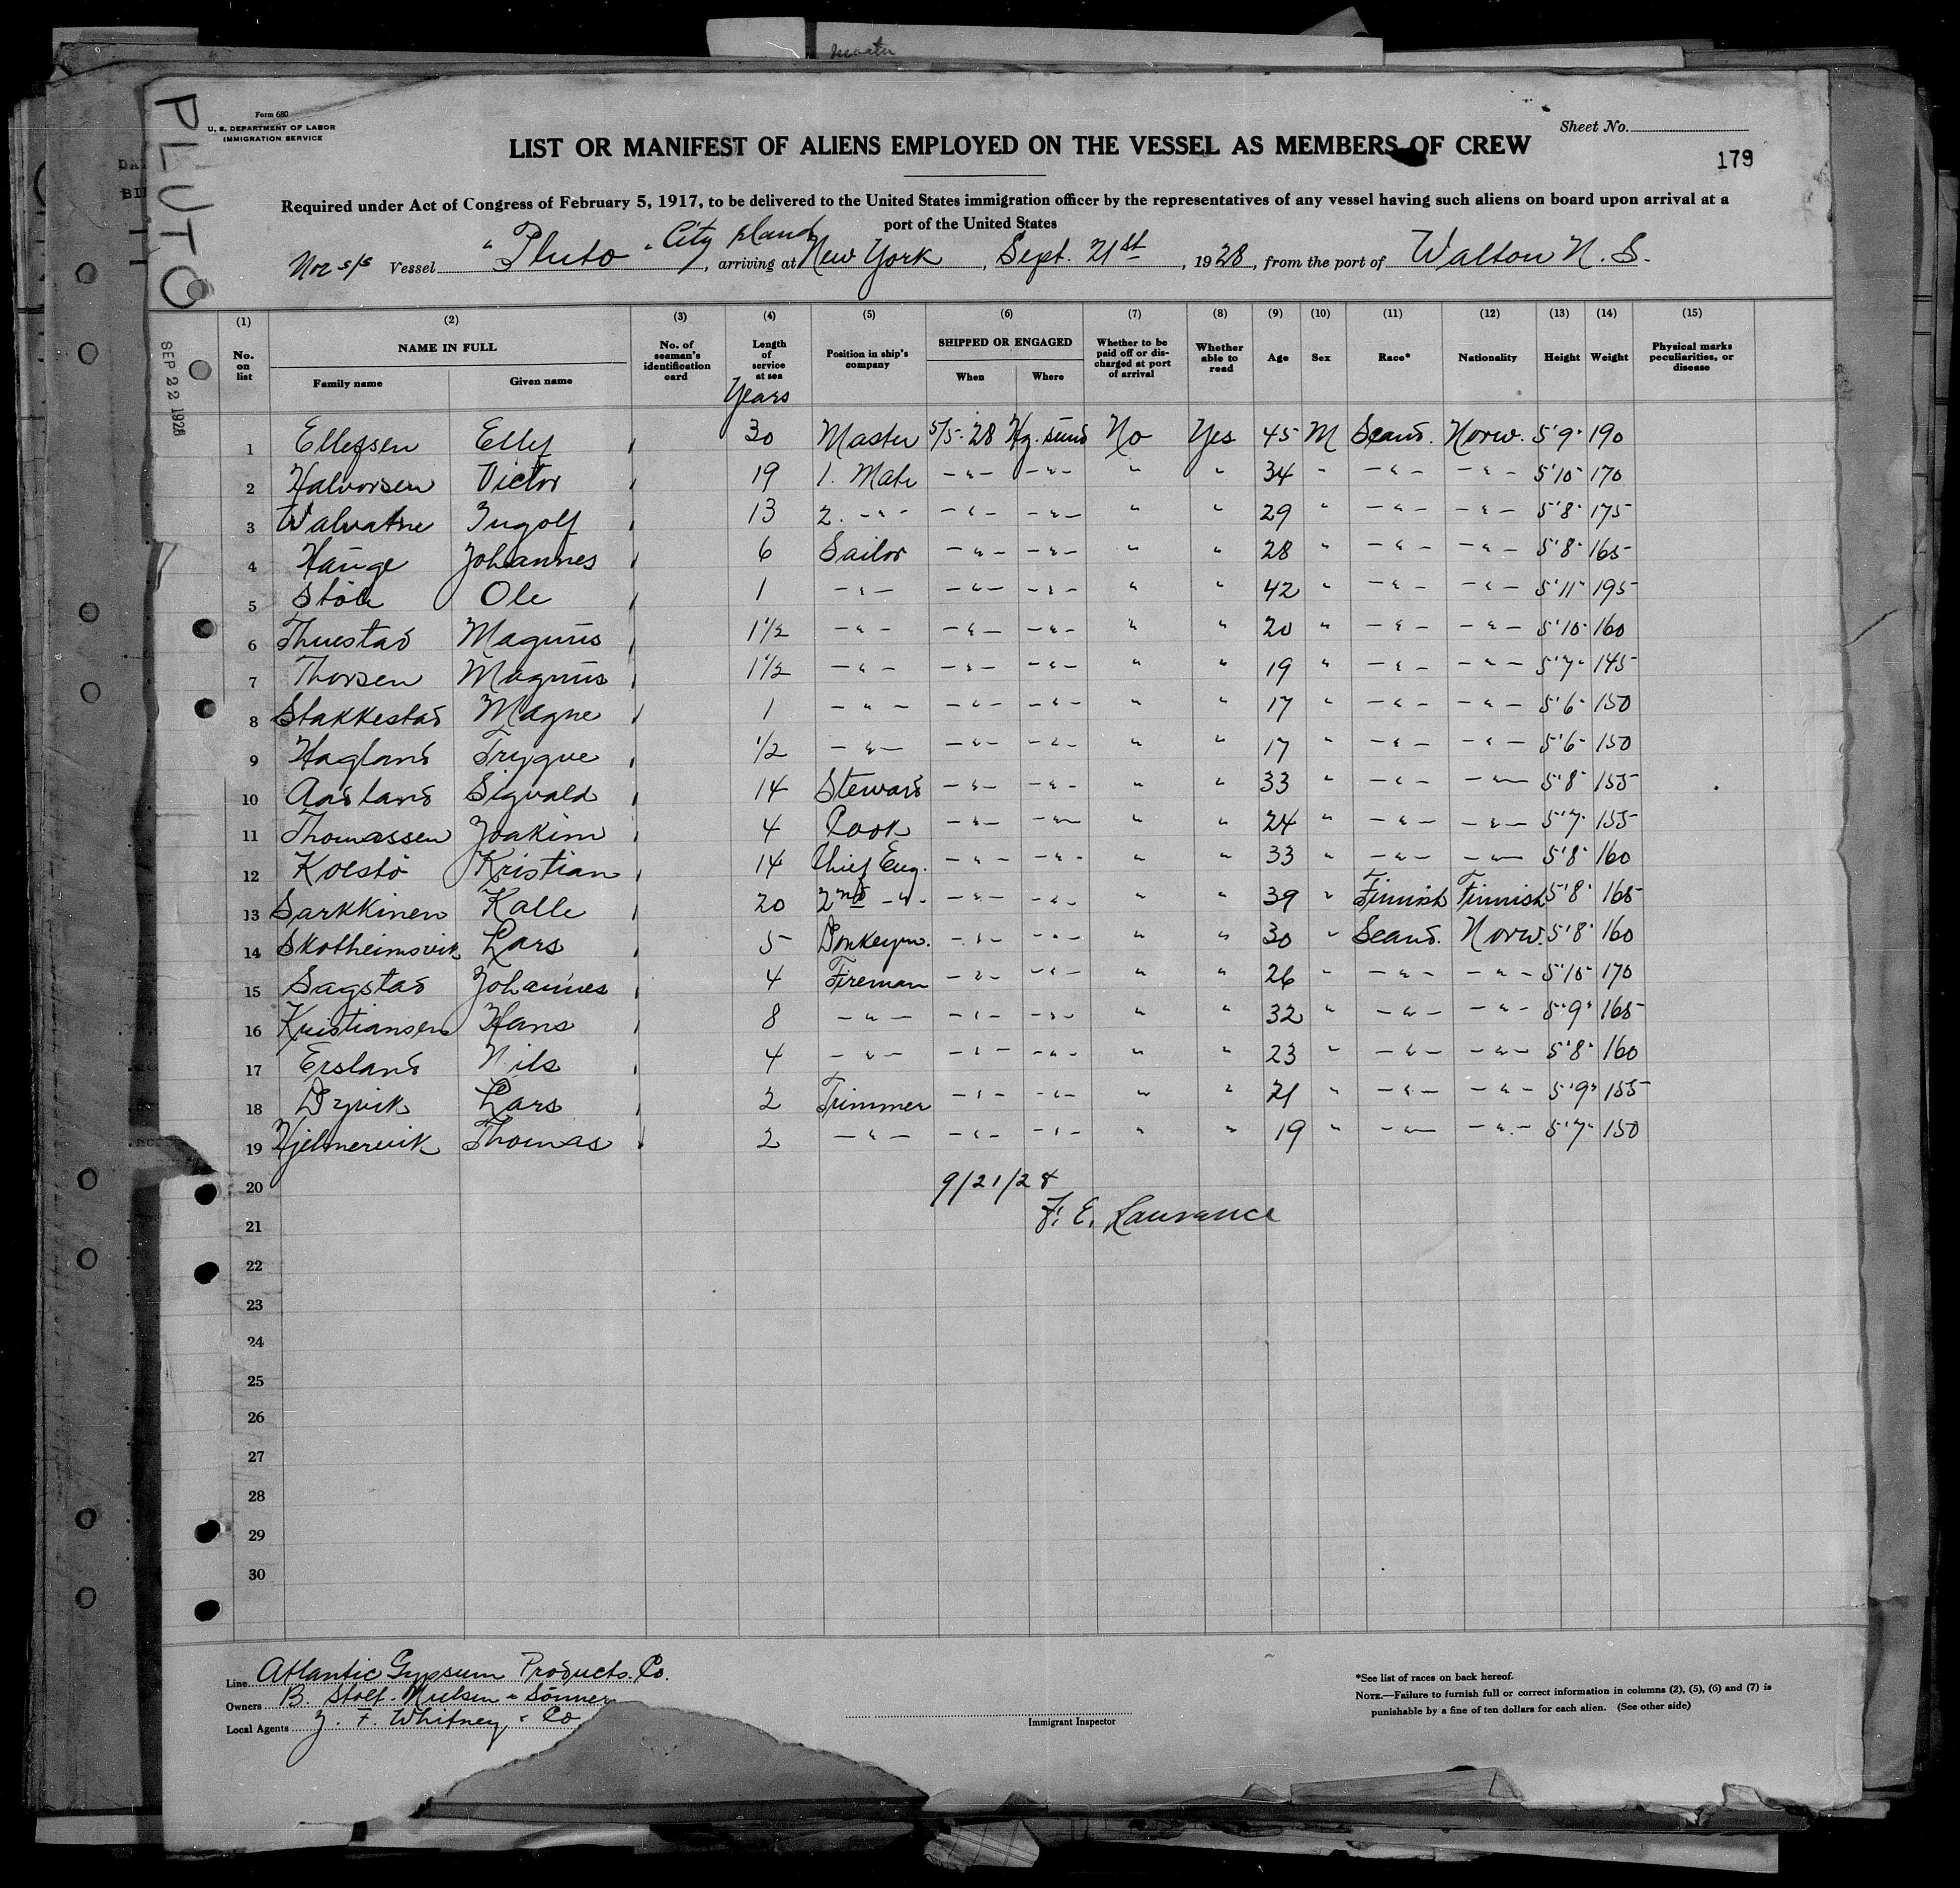 Master
PLUTO
SEP 22 1928
Form 680
U. S. DEPARTMENT OF LABOR
IMMIGRATION SERVICE
Sheet No.
179
LIST OR MANIFEST OF ALIENS EMPLOYED ON THE VESSEL AS MEMBERS OF CREW
Required under Act of Congress of February 5, 1917, to be delivered to the United States immigration officer by the representatives of any vessel having such aliens on board upon arrival at a
port of the United States
City Island
Nor s/s Vessel "Pluto", arriving at New York, Sept. 21st, 1928, from the port of Walton N. S.
(1) (2) (3) (4) (5) (6) (7) (8) (9) (10) (11) (12) (13) (14) (15)
No. on list NAME IN FULL Family name Given name No. of seaman's identification card Length of service at sea Years Position in ship's company SHIPPED OR ENGAGED When Where Whether to be paid off or discharged at port of arrival Whether able to read Age Sex Race* Nationality Height Weight Physical marks peculiarities, or disease
1 Ellefsen Ellef 30 Master 5/5-28 Hg.sund No Yes 45 M Scand. Norw. 5'9" 190
2 Halvorsen Victor 19 1. Mate -"- -"- " " 34 " -"- -"- 5'10" 170
3 Walvatne Ingolf 13 2. -"- -"- -"- " " 29 " -"- -"- 5'8" 175
4 Hauge Johannes 6 Sailor -"- -"- " " 28 " -"- -"- 5'8" 165
5 Ole 1 -"- -"- -"- " " 42 " -"- -"- 5'11" 195
6 Thuestad Magnus 1 1/2 -"- -"- -"- " " 20 " -"- -"- 5'10" 160
7 Thorsen Magnus 1 1/2 -"- -"- -"- " " 19 " -"- -"- 5'7" 145
8 Stakkestad Magne 1 -"- -"- -"- " " 17 " -"- -"- 5'6" 150
9 Hagland Trygve 1/2 -"- -"- -"- " " 17 " -"- -"- 5'6" 150
10 Aasland Sigvald 14 Steward -"- -"- " " 33 " -"- -"- 5'8" 155
11 Thomassen Joakim 4 Cook -"- -"- " " 24 " -"- -"- 5'7" 155
12 Kolstö Kristian 14 Chief Eng. -"- -"- " " 33 " -"- -"- 5'8" 160
13 Sarkkinen Kalle 20 2nd -"- -"- -"- " " 39 " Finnish Finnish 5'8" 165
14 Skotheimsvik Lars 5 Donkeym. -"- -"- " " 30 " Scand. Norw. 5'8" 160
15 Sagstad Johannes 4 Fireman -"- -"- " " 26 " -"- -"- 5'10" 170
16 Kristiansen Hans 8 -"- -"- -"- " " 32 " -"- -"- 5'9" 165
17 Ersland Nils 4 -"- -"- -"- " " 23 " -"- -"- 5'8" 160
18 Dyvik Lars 2 Trimmer -"- -"- " " 21 " -"- -"- 5'9" 155
19 Hjelmervik Thomas 2 -"- -"- -"- " " 19 " -"- -"- 5'7" 150
20 9/21/28
21 F. E. Laurance
22
23
24
25
26
27
28
29
30
Line Atlantic Gypsum Products. Co.
Owners B. Stolt-Nielsen & Sönner
Local Agents J. F. Whitney & Co
Immigrant Inspector
*See list of races on back hereof.
NOTE.—Failure to furnish full or correct information in columns (2), (5), (6) and (7) is
punishable by a fine of ten dollars for each alien. (See other side)